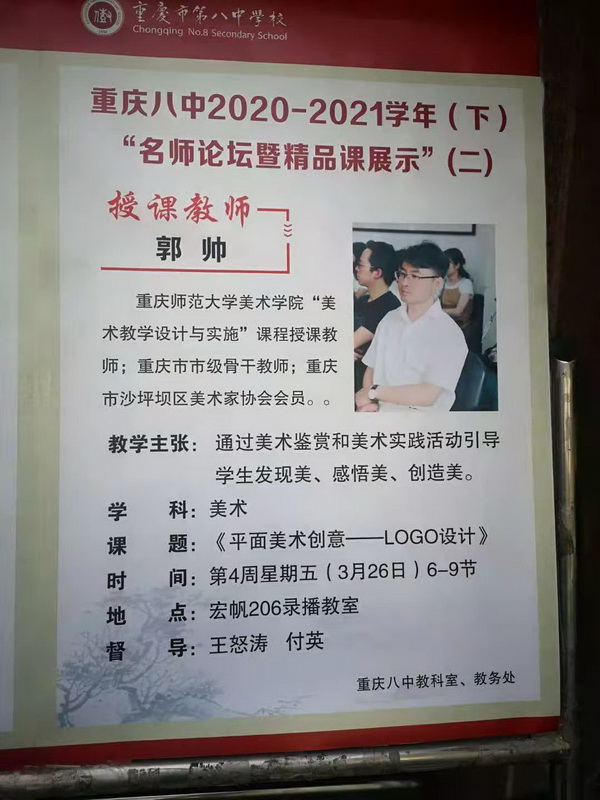 重慶市第八中學校
Chongqing No.8 Secondary School
重庆八中2020-2021学年（下）
“名师论坛暨精品课展示”(二)
授课教师
郭 帅
重庆师范大学美术学院“美
术教学设计与实施”课程授课教
师；重庆市市级骨干教师；重庆
市沙坪坝区美术家协会会员。。
教学主张：通过美术鉴赏和美术实践活动引导
学生发现美、感悟美、创造美。
学 科：美术
课 题：《平面美术创意——LOGO设计》
时 间：第4周星期五（3月26日）6-9节
地 点：宏帆206录播教室
督 导：王怒涛 付英
重庆八中教科室、教务处